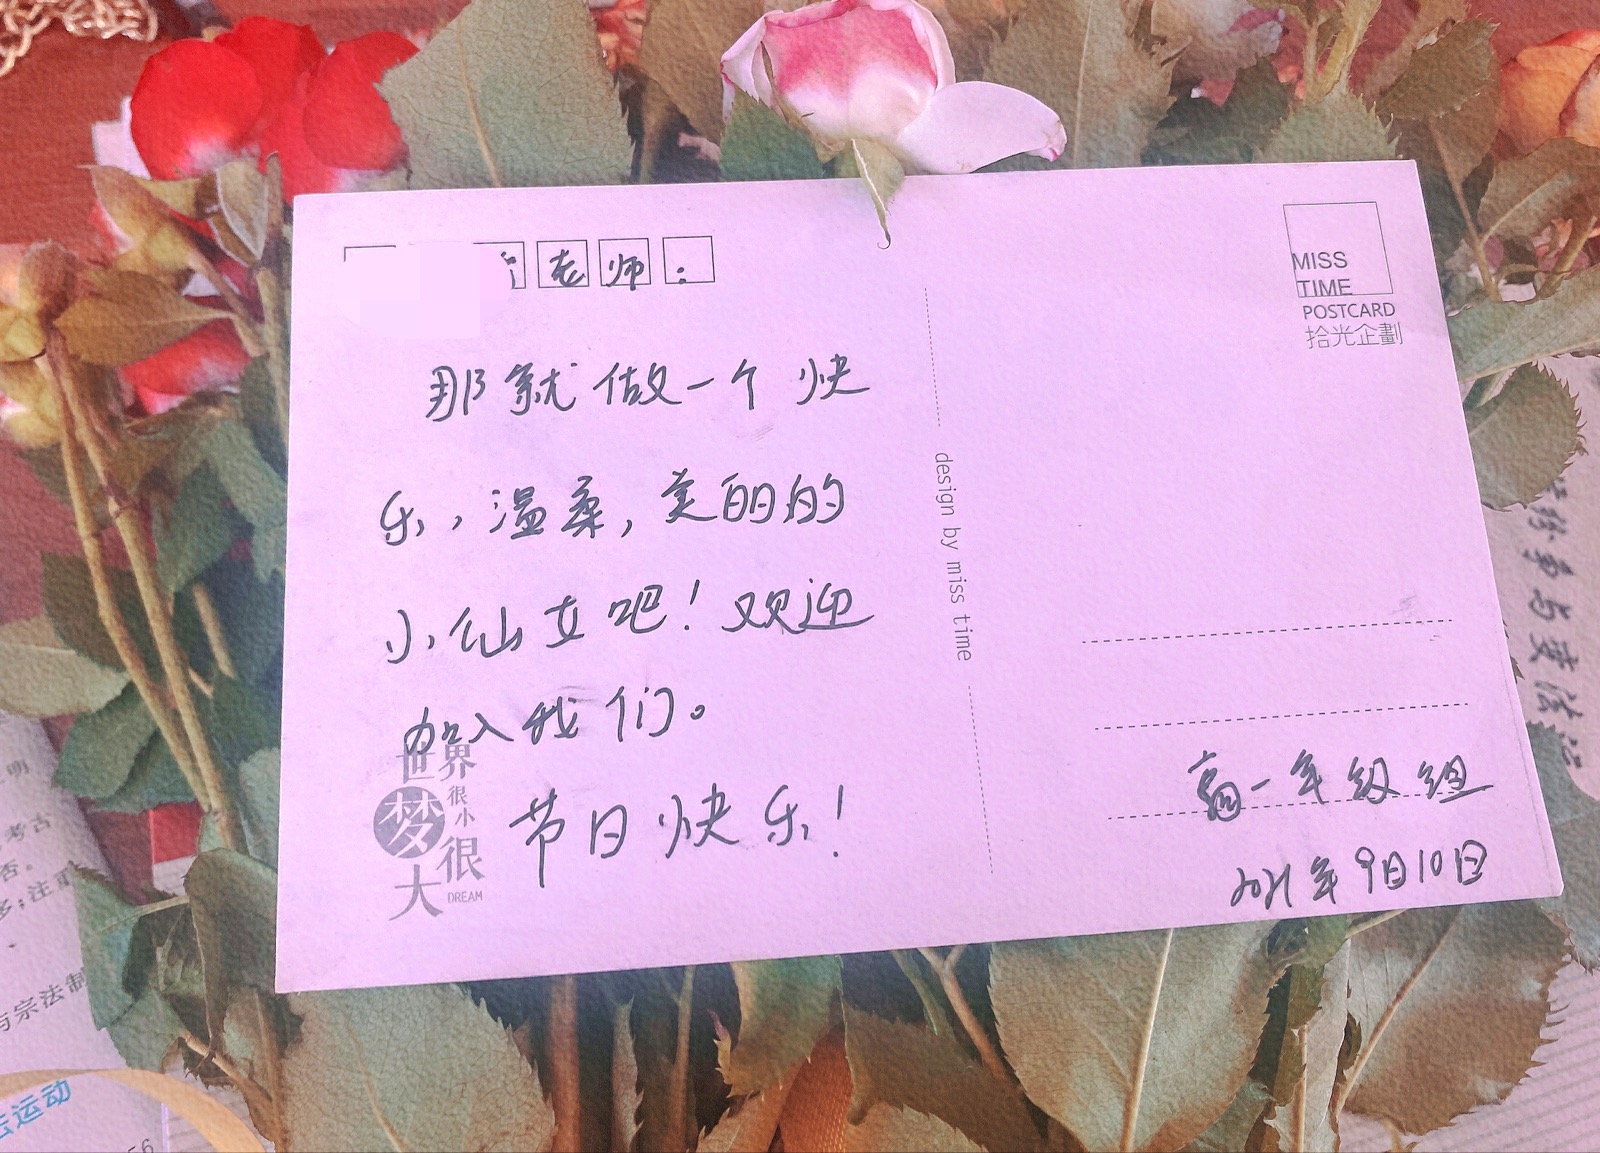 老师:
那就做一个快
乐,温柔,美丽的
小仙女吧!欢迎
加入我们。
节日快乐!
世界
很小
梦
很
大
DREAM
design by miss time
MISS
TIME
POSTCARD
拾光企劃
高一年级组
2021年9月10日
明
考古
否。
多;注重
与宗法制
运动
56